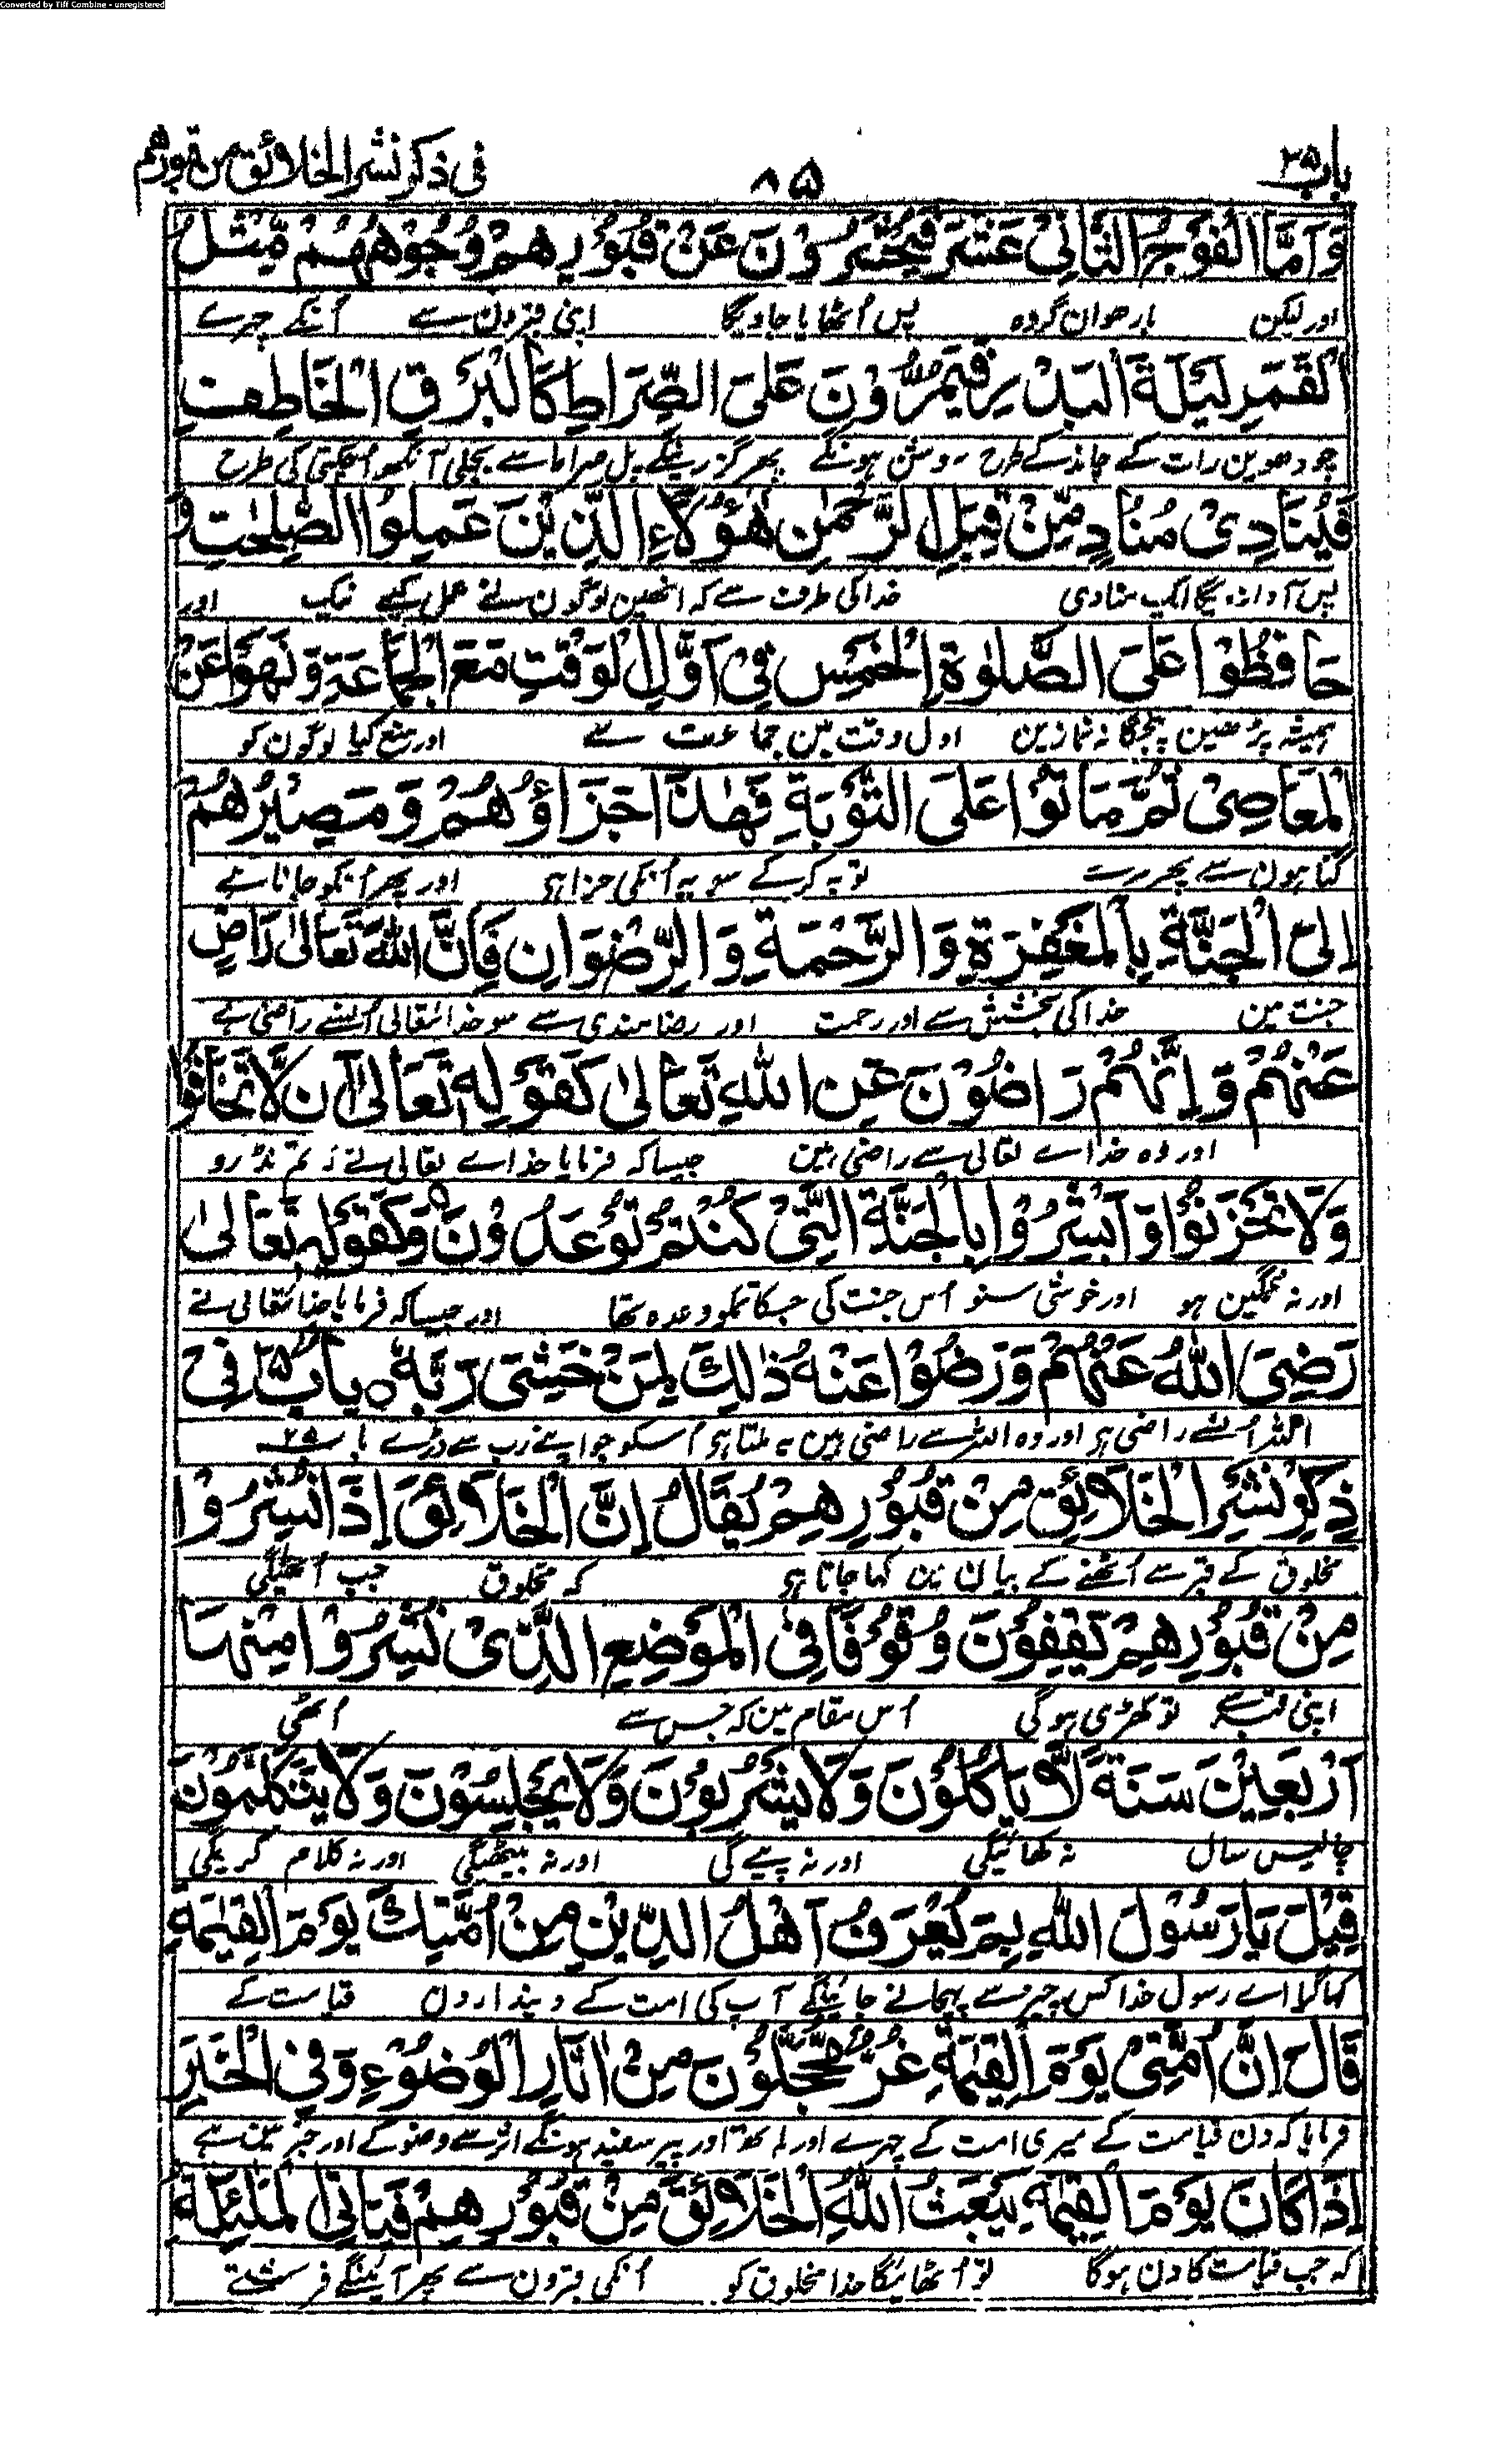 Converted by Tiff Combine - unregistered
باب ۲۵
۸۵
فی ذکر نشر الخلائق من قبورهم
وَاَمَّا الْفَوْجُ الثَّانِیْ عَشَرَ فَیُحْشَرُوْنَ عَنْ قُبُوْرِهِمْ وُجُوْهُهُمْ مِّثْلُ
اور لیکن بارھوان گروہ پس اُٹھایا جاویگا اپنی قبرون سے اُنکے چہرے
الْقَمَرِ لَیْلَةَ الْبَدْرِ فَیَمُرُّوْنَ عَلَی الصِّرَاطِ کَالْبَرْقِ الْخَاطِفِ
چودھوین رات کے چاند کے طرح روشن ہونگے پھر گزرینگے پل صراط سے بجلی آنکھ اُچکتی کی طرح
فَیُنَادِیْ مُنَادٍ مِّنْ قِبَلِ الرَّحْمٰنِ هٰؤُلَاءِ الَّذِیْنَ عَمِلُوا الصّٰلِحٰتِ وَ
پس آواز دیگا ایک منادی خدا کی طرف سے کہ انھین لوگون نے عمل کیے نیک اور
حَافَظُوْا عَلَی الصَّلٰوةِ الْخَمْسِ فِیْ اَوَّلِ الْوَقْتِ مَعَ الْجَمَاعَةِ وَنَهَوْا عَنْ
ہمیشہ پڑھین پنجگانہ نمازین اول وقت مین جماعت سے اور منع کیا لوگون کو
الْمَعَاصِیْ ثُمَّ مَاتُوْا عَلَی التَّوْبَةِ فَهٰذَا جَزَاؤُهُمْ وَمَصِیْرُهُمْ
گناہون سے پھر مرے توبہ کرکے سو یہ اُنکی جزا ہی اور پھر اُنکو جانا ہے
اِلَی الْجَنَّةِ بِالْمَغْفِرَةِ وَالرَّحْمَةِ وَالرِّضْوَانِ فَاِنَّ اللّٰهَ تَعَالٰی رَاضٍ
جنت مین خدا کی بخشش سے اور رحمت اور رضامندی سے سو خدا تعالی اُنسے راضی ہے
عَنْهُمْ وَاِنَّهُمْ رَاضُوْنَ عَنِ اللّٰهِ تَعَالٰی کَقَوْلِهٖ تَعَالٰی اَنْ لَّا تَخَافُوْا
اور وہ خداے تعالی سے راضی ہین جیسا کہ فرمایا خداے تعالی نے نہ تم ڈرو
وَلَا تَحْزَنُوْا وَاَبْشِرُوْا بِالْجَنَّةِ الَّتِیْ کُنْتُمْ تُوْعَدُوْنَ وَکَقَوْلِهٖ تَعَالٰی
اور نہ غمگین ہو اور خوشی سنو اُس جنت کی جسکا تمکو وعدہ تھا اور جیسا کہ فرمایا خدا تعالی نے
رَضِیَ اللّٰهُ عَنْهُمْ وَرَضُوْا عَنْهُ ذٰلِكَ لِمَنْ خَشِیَ رَبَّهٗ باب ۲۵ فِیْ
اللہ اُنسے راضی ہی اور وہ اللہ سے راضی ہین یہ ملتا ہی اُسکو جو اپنے رب سے ڈرے باب ۲۵
ذِکْرِ نَشْرِ الْخَلَائِقِ مِنْ قُبُوْرِهِمْ یُقَالُ اِنَّ الْخَلَائِقَ اِذَا نُشِرُوْا
مخلوق کے قبر سے اُٹھنے کے بیان مین کہا جاتا ہی کہ مخلوق جب اُٹھیگی
مِنْ قُبُوْرِهِمْ یَقِفُوْنَ وُقُوْفًا فِی الْمَوْضِعِ الَّذِیْ نُشِرُوْا مِنْهَا
اپنی قبر سے تو کھڑی ہوگی اُس مقام مین کہ جس سے اُٹھی
اَرْبَعِیْنَ سَنَةً لَّا یَاْکُلُوْنَ وَلَا یَشْرَبُوْنَ وَلَا یَجْلِسُوْنَ وَلَا یَتَکَلَّمُوْنَ
چالیس سال نہ کھائیگی اور نہ پیے گی اور نہ بیٹھیگی اور نہ کلام کریگی
قِیْلَ یَا رَسُوْلَ اللّٰهِ بِمَ یُعْرَفُ اَهْلُ الدِّیْنِ مِنْ اُمَّتِكَ یَوْمَ الْقِیٰمَةِ
کہا گیا اے رسول خدا کس چیز سے پہچانے جائینگے آپ کی امت کے دیندارون قیامت کے
قَالَ اِنَّ اُمَّتِیْ یَوْمَ الْقِیٰمَةِ غُرٌّ مُّحَجَّلُوْنَ مِنْ اٰثَارِ الْوُضُوْءِ وَفِی الْخَبَرِ
فرمایا کہ دن قیامت کے میری امت کے چہرے اور ہاتھ اور پیر سفید ہونگے اثر سے وضو کے اور خبر مین ہے
اِذَا کَانَ یَوْمَ الْقِیٰمَةِ یَبْعَثُ اللّٰهُ الْخَلَائِقَ مِنْ قُبُوْرِهِمْ فَیَاْتِی الْمَلٰئِکَةُ
کہ جب قیامت کا دن ہوگا تو اُٹھائیگا خدا مخلوق کو اُنکی قبرون سے پھر آئینگے فرشتے